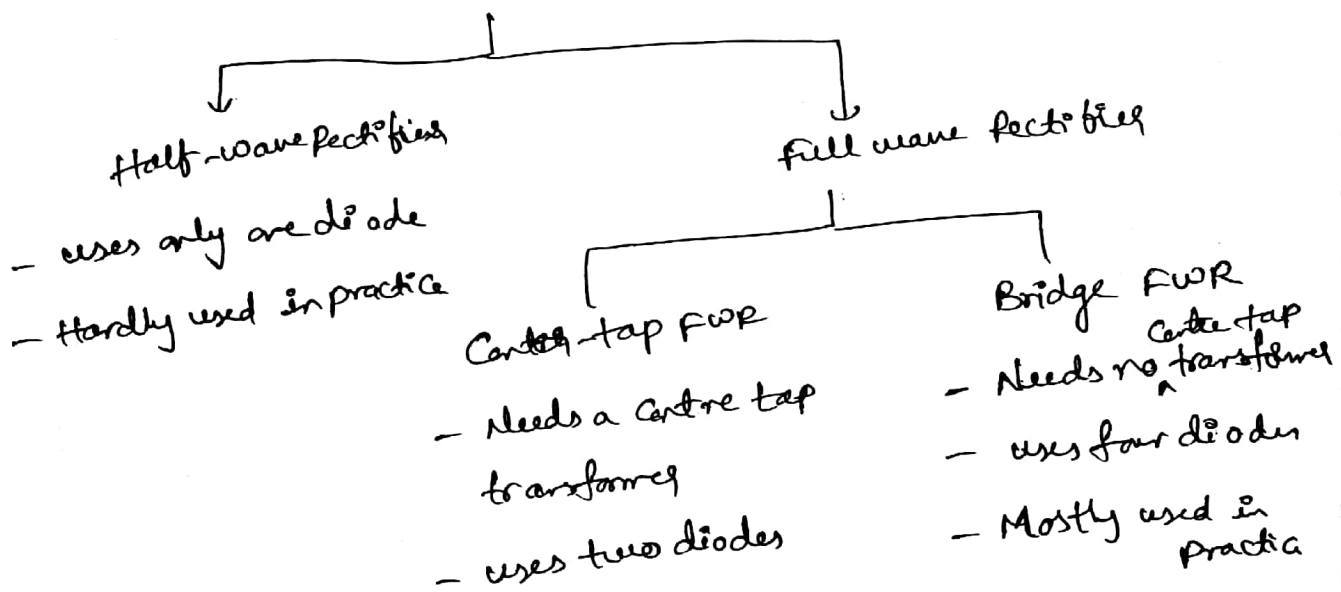 Half-wave Rectifier
- uses only one diode
- Hardly used in practice
Full wave Rectifier
Center-tap FWR
- Needs a centre tap
transformer
- uses two diodes
Bridge FWR
- Needs no centre tap transformer
- uses four diodes
- Mostly used in
practice